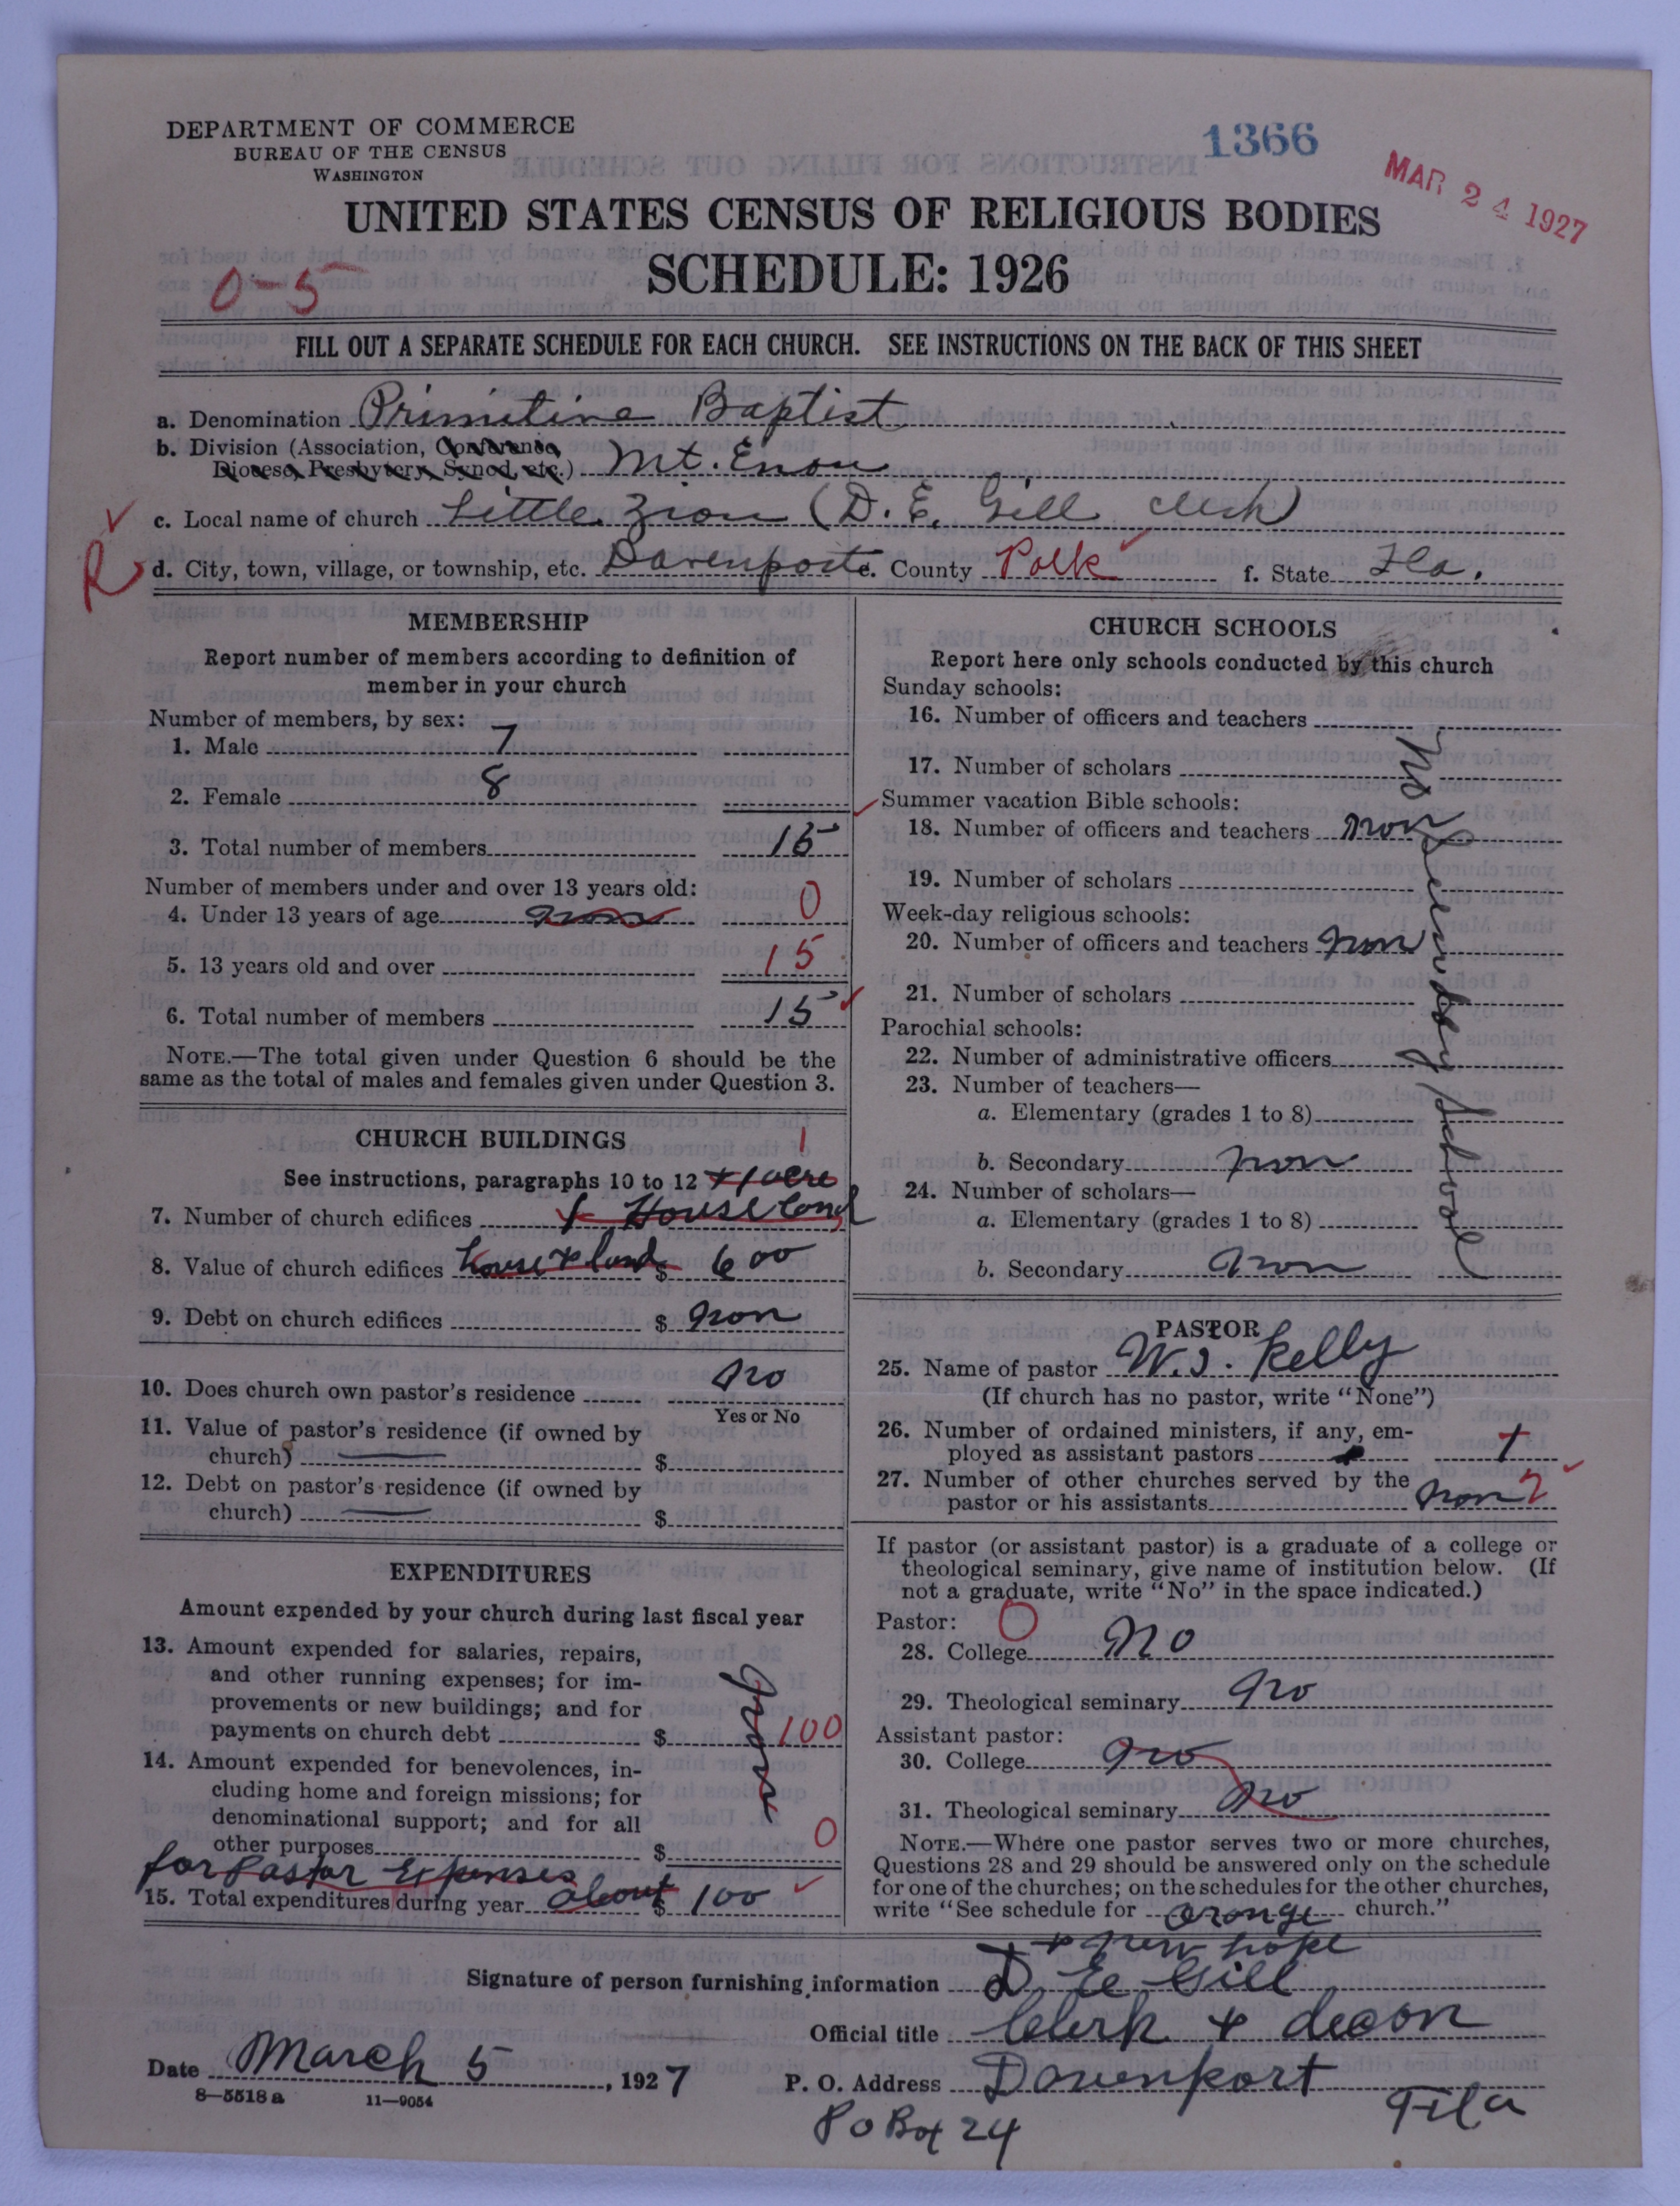 DEPARTMENT OF COMMERCE
BUREAU OF THE CENSUS
WASHINGTON
1366
MAR 24 1927
UNITED STATES CENSUS OF RELIGIOUS BODIES
SCHEDULE: 1926
0-5
FILL OUT A SEPARATE SCHEDULE FOR EACH CHURCH. SEE INSTRUCTIONS ON THE BACK OF THIS SHEET
a. Denomination Primitive Baptist
b. Division (Association, Conference,
Diocese, Presbytery, Synod, etc.) Mt. Enon
c. Local name of church Little Zion (D. E. Gill clerk)
R d. City, town, village, or township, etc. Davenport e. County Polk f. State Fla.
MEMBERSHIP
Report number of members according to definition of
member in your church
Number of members, by sex:
1. Male 7
2. Female 8
3. Total number of members 15
Number of members under and over 13 years old:
4. Under 13 years of age non 0
5. 13 years old and over 15
6. Total number of members 15
NOTE.—The total given under Question 6 should be the
same as the total of males and females given under Question 3.
CHURCH BUILDINGS
1
See instructions, paragraphs 10 to 12 + 1 acre
7. Number of church edifices 1 House land
8. Value of church edifices house + land $ 600
9. Debt on church edifices $ non
10. Does church own pastor's residence no
Yes or No
11. Value of pastor's residence (if owned by
church) $
12. Debt on pastor's residence (if owned by
church) $
EXPENDITURES
Amount expended by your church during last fiscal year
13. Amount expended for salaries, repairs,
and other running expenses; for im-
provements or new buildings; and for
payments on church debt $ 100
14. Amount expended for benevolences, in-
cluding home and foreign missions; for
denominational support; and for all
other purposes $ 0
for Pastor Expenses
15. Total expenditures during year about $ 100
CHURCH SCHOOLS
Report here only schools conducted by this church
Sunday schools:
16. Number of officers and teachers
17. Number of scholars
Summer vacation Bible schools:
18. Number of officers and teachers non
19. Number of scholars
Week-day religious schools:
20. Number of officers and teachers non
21. Number of scholars
Parochial schools:
22. Number of administrative officers
23. Number of teachers—
a. Elementary (grades 1 to 8)
b. Secondary non
24. Number of scholars—
a. Elementary (grades 1 to 8)
b. Secondary non
PASTOR
25. Name of pastor W. J. Kelly
(If church has no pastor, write "None")
26. Number of ordained ministers, if any, em-
ployed as assistant pastors
27. Number of other churches served by the
pastor or his assistants non 2
If pastor (or assistant pastor) is a graduate of a college or
theological seminary, give name of institution below. (If
not a graduate, write "No" in the space indicated.)
Pastor: 0
28. College no
29. Theological seminary no
Assistant pastor:
30. College no
31. Theological seminary no
NOTE.—Where one pastor serves two or more churches,
Questions 28 and 29 should be answered only on the schedule
for one of the churches; on the schedules for the other churches,
write "See schedule for orange church."
+ new hope
Signature of person furnishing information D E Gill
Official title Clerk + decon
Date March 5, 1927
P. O. Address Davenport
Fla
P o Box 24
8—5518 a 11—9054